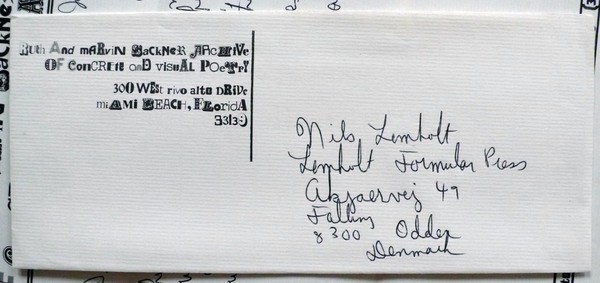 Ruth And mARviN SacKNeR ARcHIVe
OF ConCRETE anD visuAL PoeTrY
300 WESt rivo alto DRiVe
miAMi BEACH, FLoridA
33139
Nils Lomholt
Lomholt Formular Press
Akjaervej 49
Falling
8300 Odder
Denmark